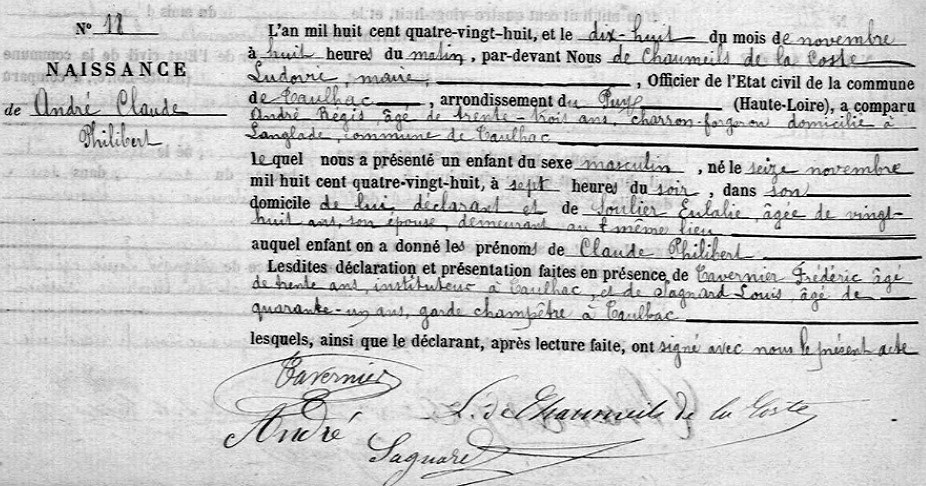 N° 18
NAISSANCE
de André Claude
Philibert
L'an mil huit cent quatre-vingt-huit, et le dix-huit du mois de novembre
à huit heures du matin, par-devant Nous de Chaumeils de la Coste
Ludovic maire, Officier de l'Etat civil de la commune
de Caulhac, arrondissement du Puy (Haute-Loire), a comparu
André Régis, âgé de trente-trois ans, charron-forgeron domicilié à
Langlade, commune de Caulhac
lequel nous a présenté un enfant du sexe masculin, né le seize novembre
mil huit cent quatre-vingt-huit, à sept heures du soir, dans son
domicile de lui déclarant et de Soulier Eulalie, âgée de vingt-
huit ans, son épouse, demeurant au même lieu
auquel enfant on a donné les prénoms de Claude Philibert
Lesdites déclaration et présentation faites en présence de Tavernier Frédéric âgé
de trente ans, instituteur à Caulhac, et de Sagnard Louis, âgé de
quarante-un ans, garde champêtre à Caulhac
lesquels, ainsi que le déclarant, après lecture faite, ont signé avec nous le présent acte
Tavernier
André
L. de Chaumeils de la Coste
Sagnard